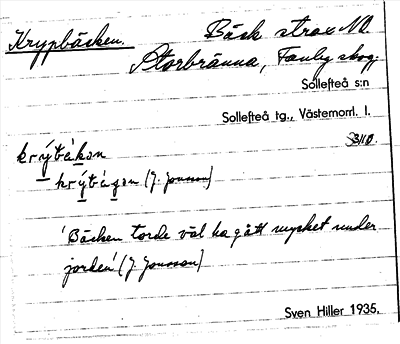 Krypbäcken. Bäck strax NO.
Storbränna, Fanby skog.
Sollefteå s:n
Sollefteå tg., Västernorrl. l.
krýtèkan
krýtègan (J. Jonsson)
'Bäcken torde väl ha gått mycket under
jorden' (J. Jonsson)
Sven Hiller 1935.